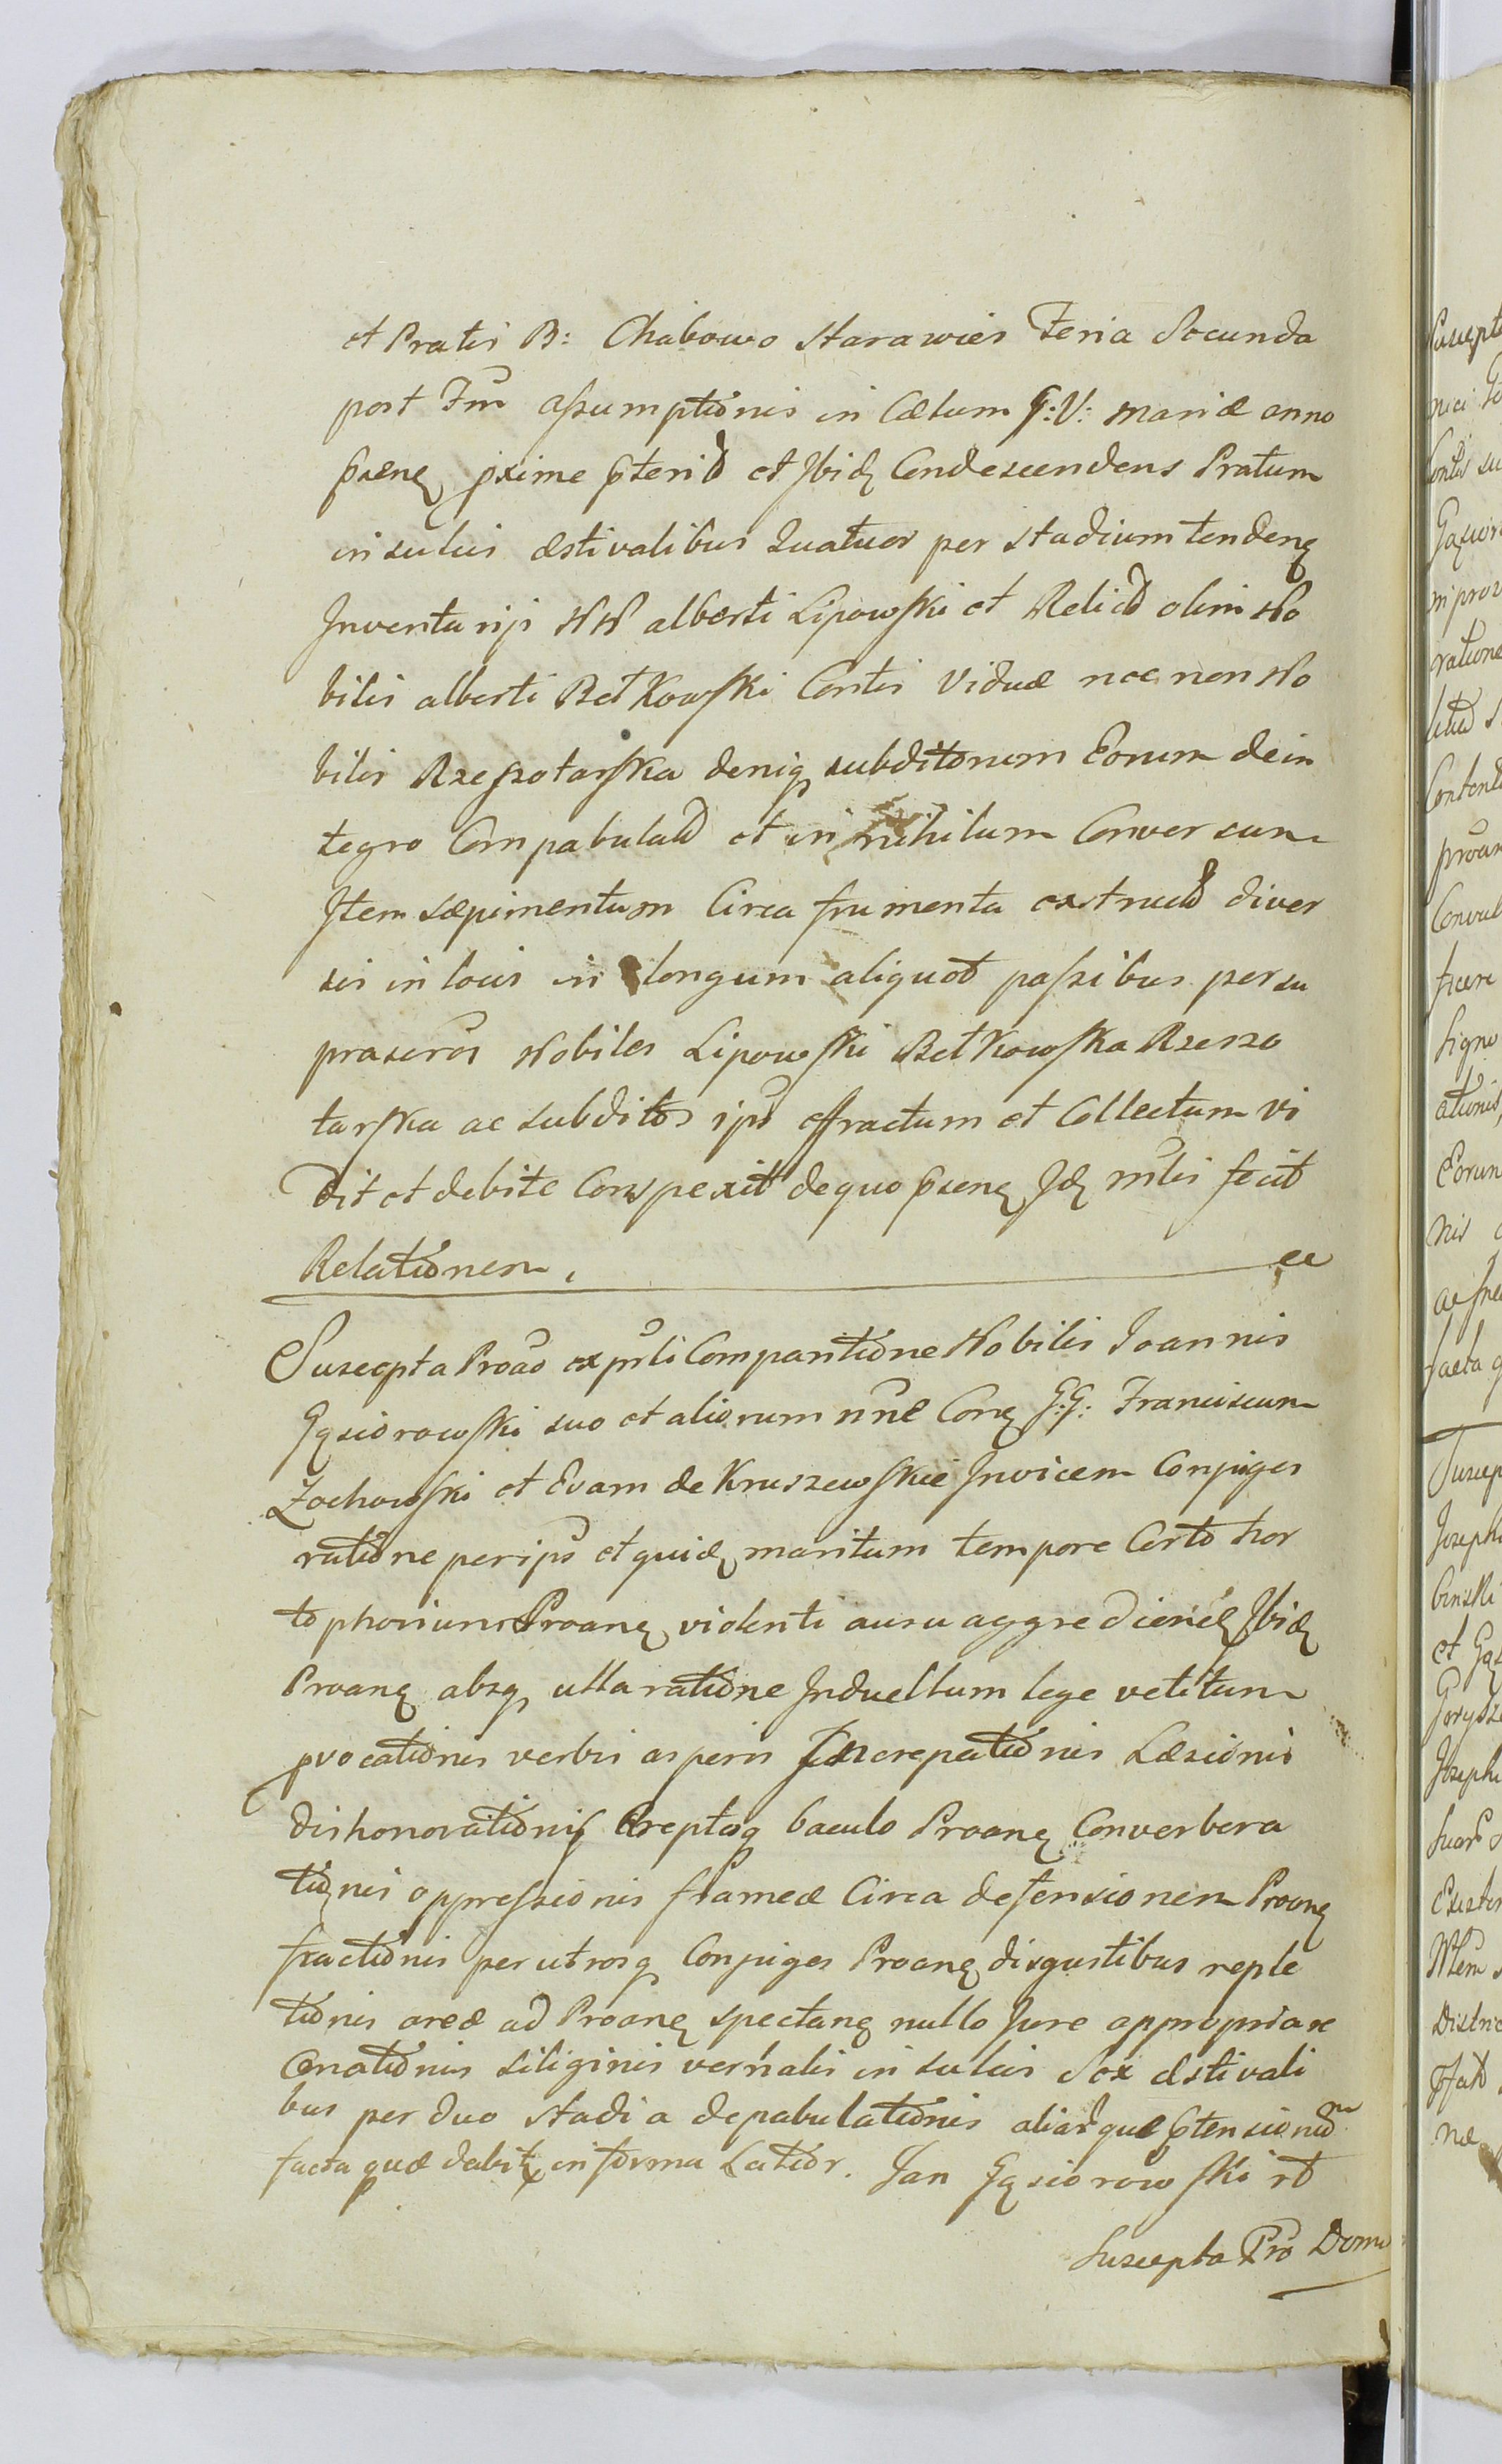 et Pratis B: Chabowo Starawies Feria Secunda
post Fm̃ assumptionis in Cælum G:V: Mariæ anno
pñsenę pxime pterit et Ibidę Condescendens Pratum
in sulcis æstivalibus Quatuor per stadium tendenę
Inventarii NN alberti Lipowski et Relict olim No
bilis alberti Betkowski Contis Viduæ nec non No
bilis Rzeszotarska denique subditorum Eorum de in
tegro Compabulat et in nihilum Conversum
Item sæpimentum Circa frumenta exstruct diver
sis in locis in longum aliquot passibus per su
prascros Nobiles Lipowski Betkowska Rzeszo
tarska ac subditos ips effractum et Collectum vi
dit et debite Conspexit de quo psenę Idę mlis fecit
Relationem,
Suscepta Proao ex psli Comparitione Nobilis Joannis
Gąsiorowski suo et aliorum nne Conę G:G: Franciscum
Zochowski et Evam de Kruszewskie Invicem Conjuges
ratione per ips et quidę maritum tempore Certo hor
tophorium Proanę violenti ausu aggredienę Ibidę
Proanę absq ulla ratione Induellum lege vetitum
pvocationis verbis asperis Increpationis Læsionis
dishonorationis Ereptoq baculo Proanę Converbera
tionis oppressionis frameæ Circa defensionem Proanę
fractionis per utrosq Conjuges Proanę disgustibus reple
tionis areæ ad Proanę spectanę nullo Jure appropriare
Conationis siliginis vernalis in sulcis Sex æstivali
bus per duo stadia depabulationis aliarque ptensionum
facta quæ dabitę in forma Latior. Jan Gąsiorowski rt
Suscepta Pro Domi